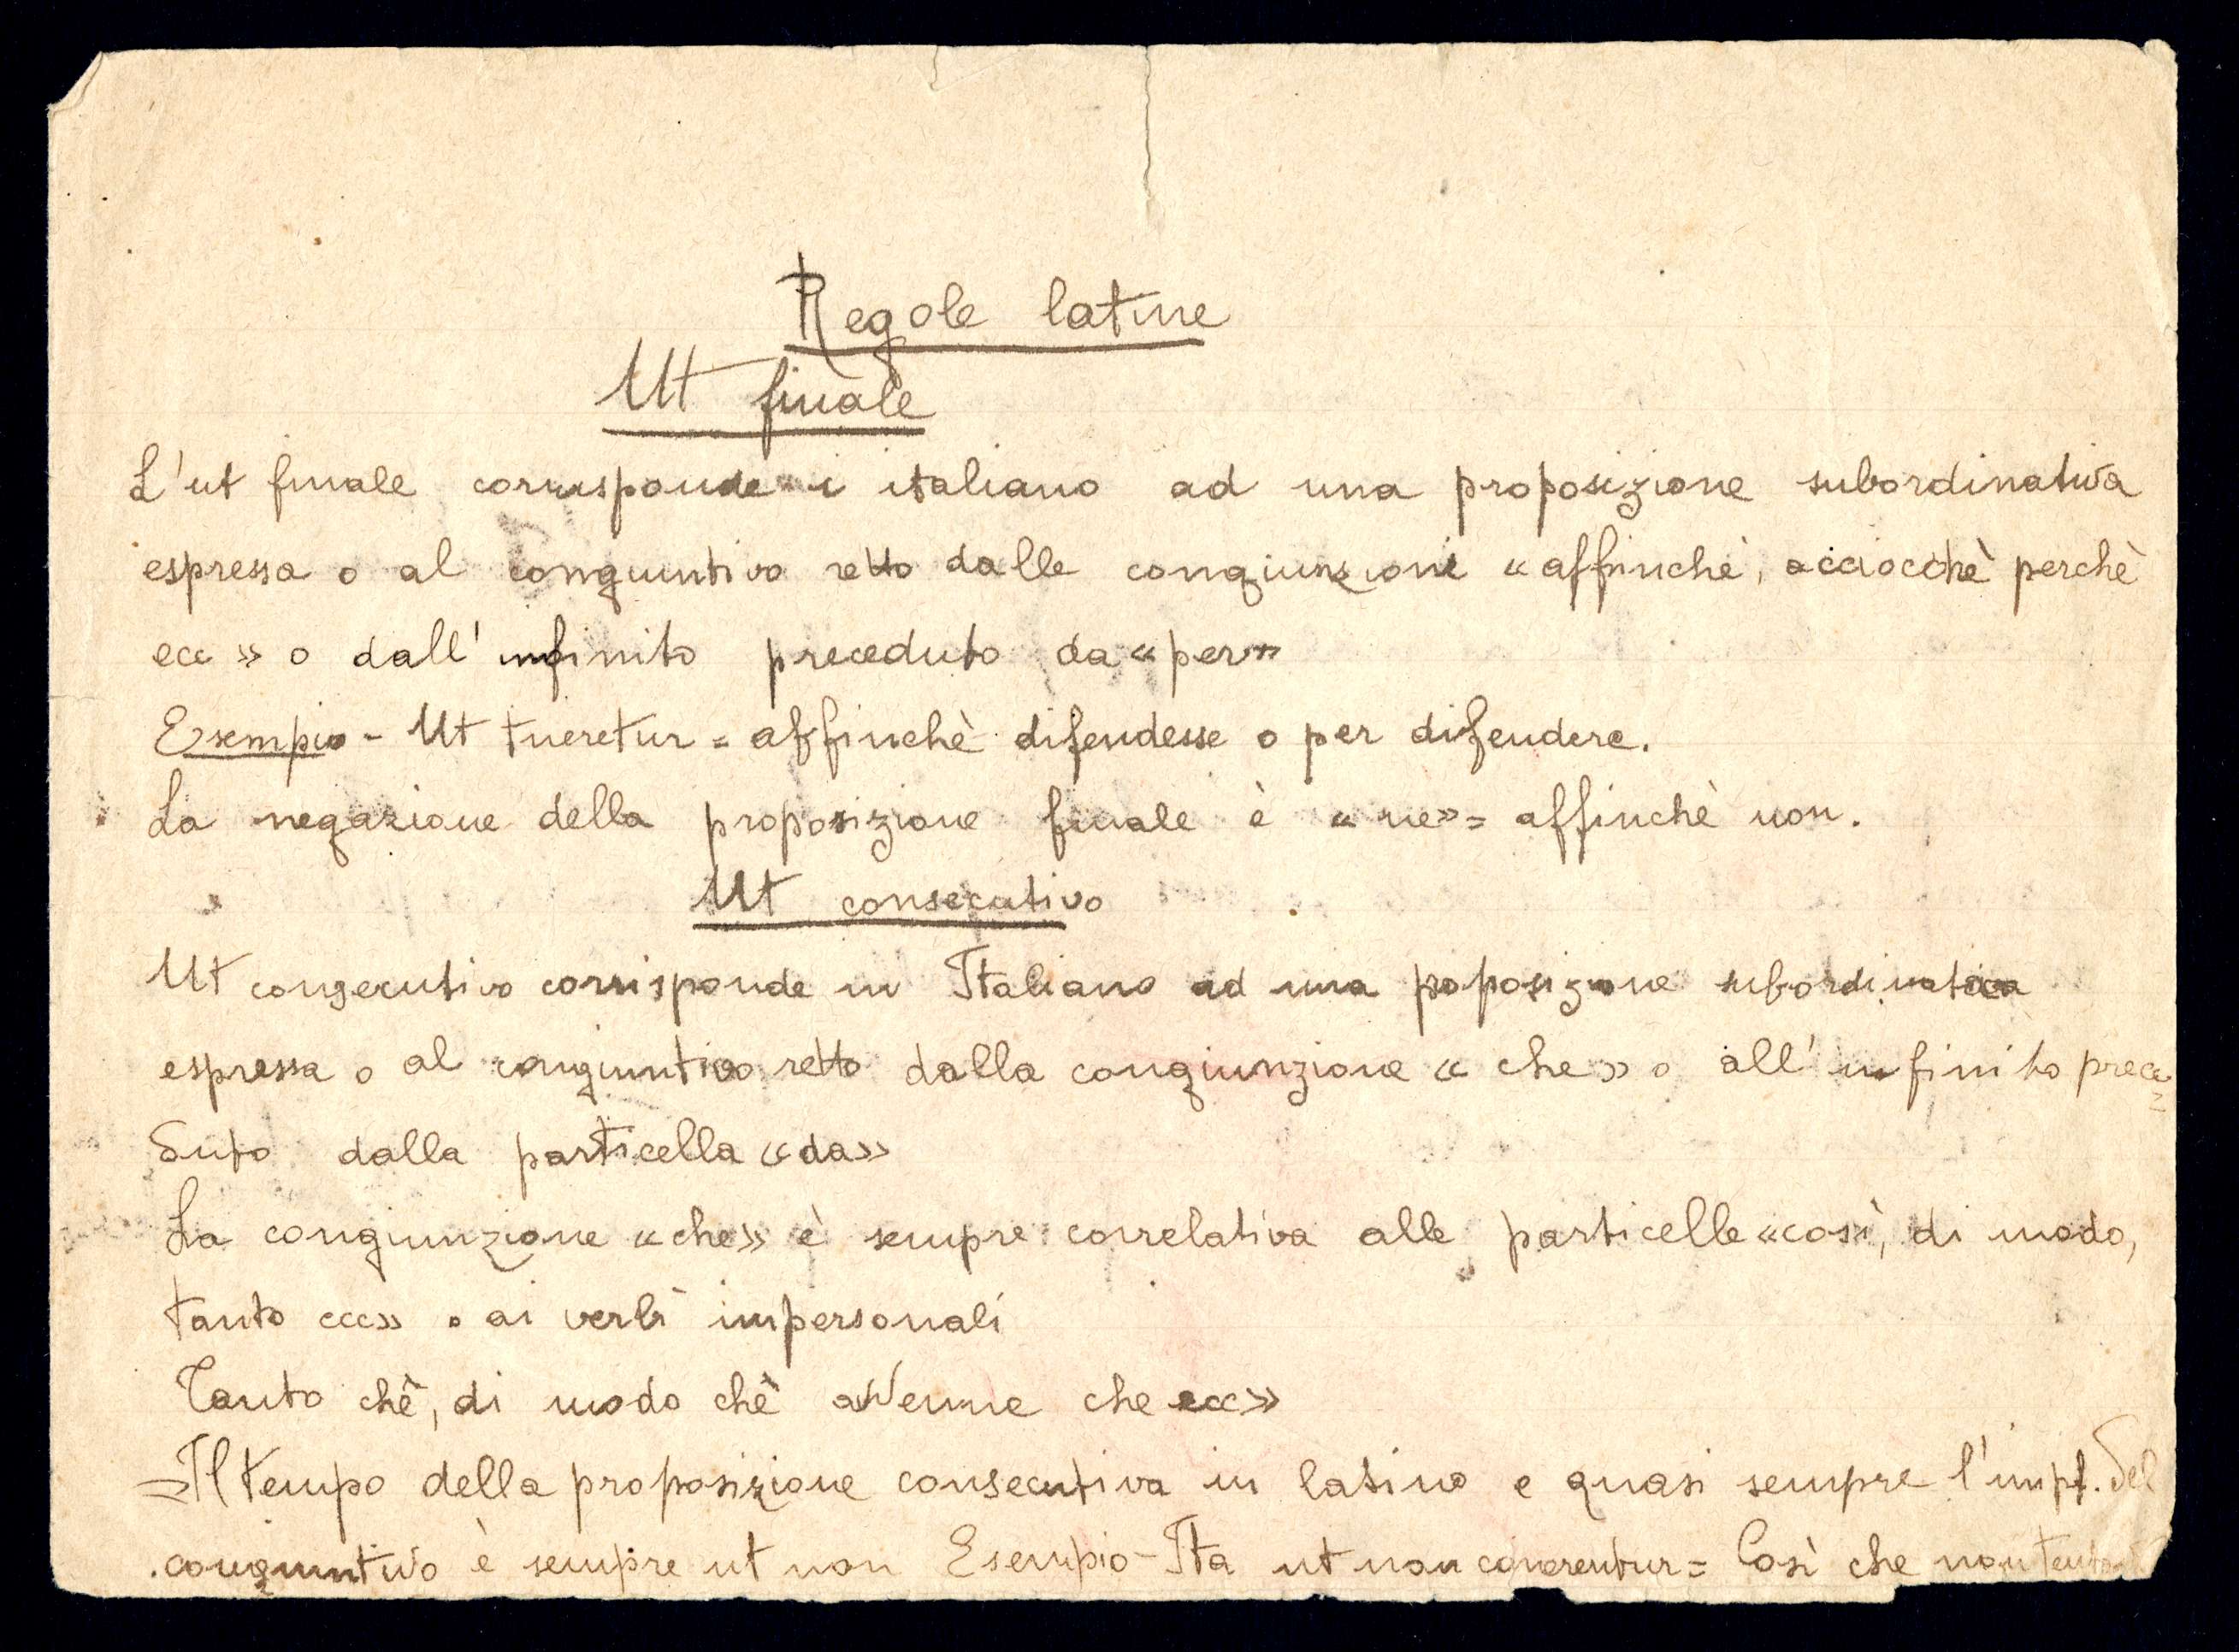 Regole latine
Ut finale
L'ut finale corrisponde i italiano ad una proposizione subordinativa
espressa o al conguntivo retto dalle congiunzioni «affinchè, acciocchè perchè
ecc» o dall'infinito preceduto da «per»
Esempio - Ut tueretur = affinchè difendesse o per difendere.
La negazione della proposizione finale è «ne» = affinchè non.
Ut consecutivo
Ut consecutivo corrisponde in Italiano ad una proposizione subordinativa
espressa o al congiuntivo retto dalla congiunzione «che» o all'infinito prece=
duto dalla particella «da»
La congiunzione «che» è sempre correlativa alle particelle «così, di modo,
tanto ecc» o ai verbi impersonali
Tanto chè, di modo chè avvenne che ecc»
=Il tempo della proposizione consecutiva in latino e quasi sempre l'impf. del
congiuntivo è sempre ut non Esempio - Ita ut non conerentur = Così che non